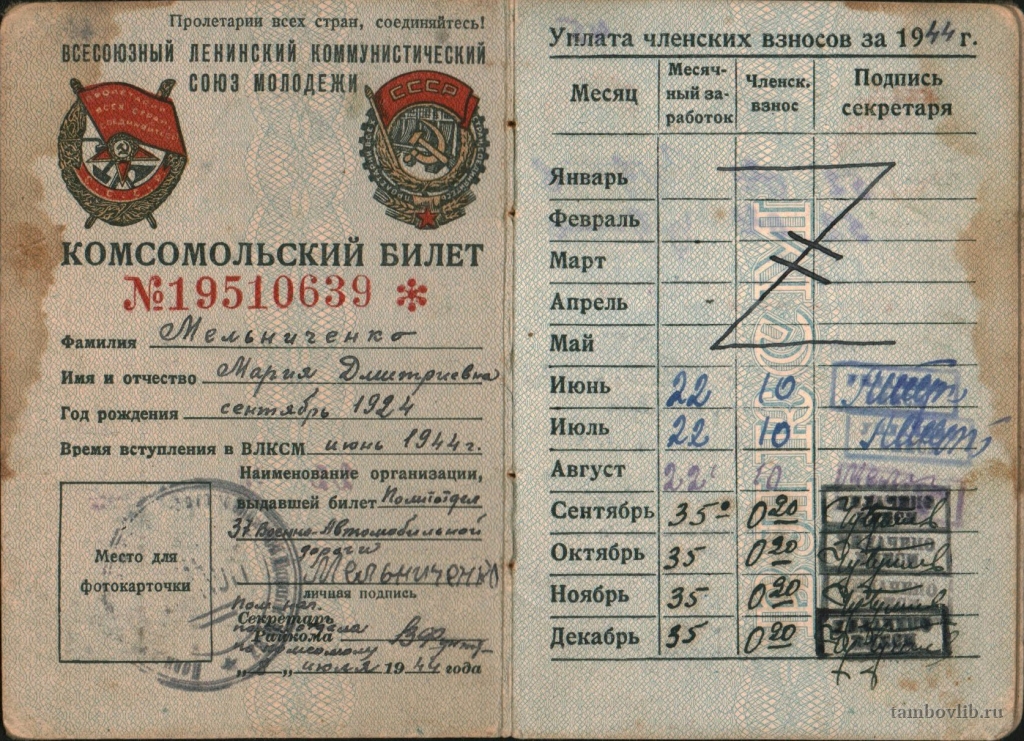 Пролетарии всех стран, соединяйтесь!
ВСЕСОЮЗНЫЙ ЛЕНИНСКИЙ КОММУНИСТИЧЕСКИЙ
СОЮЗ МОЛОДЕЖИ
ПРОЛЕТАРИИ
ВСЕХ СТРАН
СОЕДИНЯЙТЕСЬ
С.С.С.Р.
СССР
КОМСОМОЛЬСКИЙ БИЛЕТ
№19510639 *
Фамилия Мельниченко
Имя и отчество Мария Дмитриевна
Год рождения сентябрь 1924
Время вступления в ВЛКСМ июнь 1944г.
Наименование организации,
выдавшей билет Политотдел
37 Военно-Автомобильной
дороги
Место для
фотокарточки
Мельниченко
личная подпись
Пом. нач.
Секретарь
политотдела
Райкома
по комсомолу
„ “ июля 1944 года
Уплата членских взносов за 1944 г.
Месяц Месяч-ный за-работок Членск. взнос Подпись секретаря
Январь
Февраль
Март
Апрель
Май
Июнь 22 10
Июль 22 10
Август 22 10
Сентябрь 35 0 20
Октябрь 35 0 20
Ноябрь 35 0 20
Декабрь 35 0 20
ВЛКСМ
tambovlib.ru